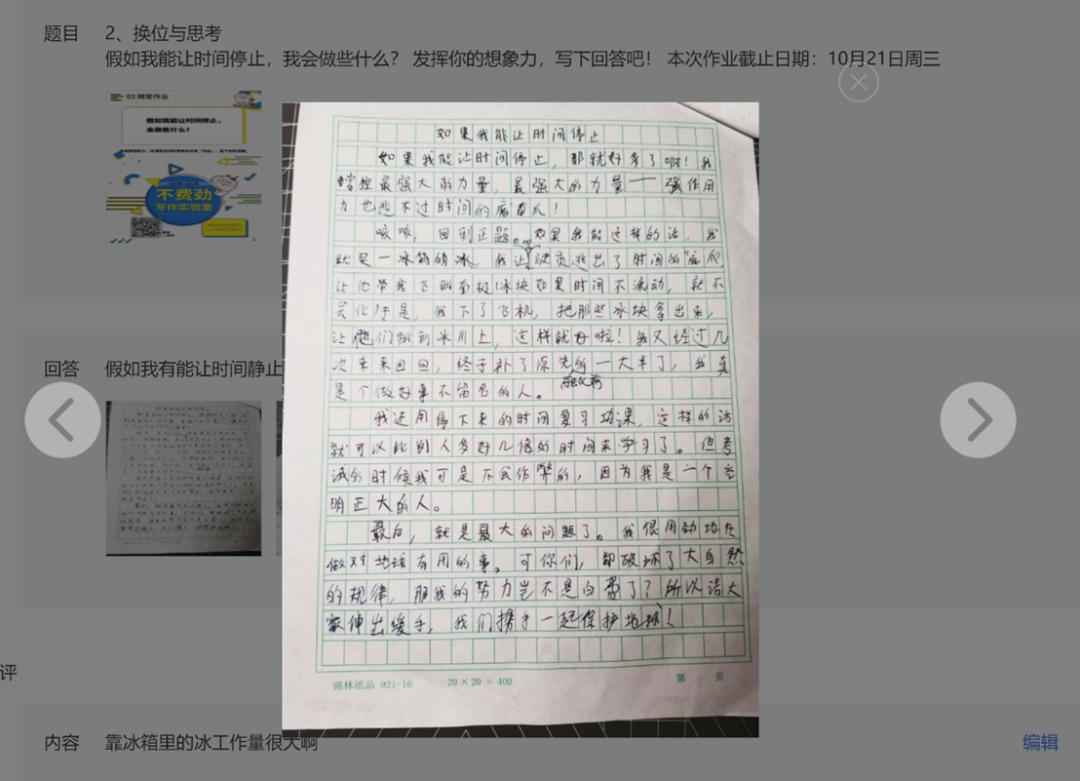 题目 2、换位与思考
假如我能让时间停止，我会做些什么？ 发挥你的想象力，写下回答吧！ 本次作业截止日期：10月21日周三
02 随堂作业
假如我能让时间停止，
会做些什么？
不费劲
写作实验室
如果我能让时间停止
如果我能让时间停止，那就好多了啊！我
掌控最强大的力量，最强大的力量——强作用
力也逃不过时间的魔爪！
咳咳，回到正题。如果我能这样的话，我
就是一冰箱的冰，我让驶员逃出了时间的魔爪
让他带我飞到南极(冰块如果时间不流动，就不
会化)于是，我下了飞机，把那些冰块拿出来，
让他们贴到冰川上，这样就好啦！我又经过几
次来来回回，终于补了原先的一大半了，我真
融化前
是个做好事不留名的人。
我还用停下来的时间复习功课，这样的话
就可以比别人多好几倍的时间来学习了。但考
试的时候我可是不会作弊的，因为我是一个光
明正大的人。
最后，就是最大的问题了。我很用劲地在
做对地球有用的事，可你们，却破坏了大自然
的规律，那我的努力岂不是白费了？所以请大
家伸出援手，我们携手一起保护地球！
强林纸品 921-16 20×20=400 第 页
回答 假如我有能让时间静止
评
内容 靠冰箱里的冰工作量很大啊
编辑